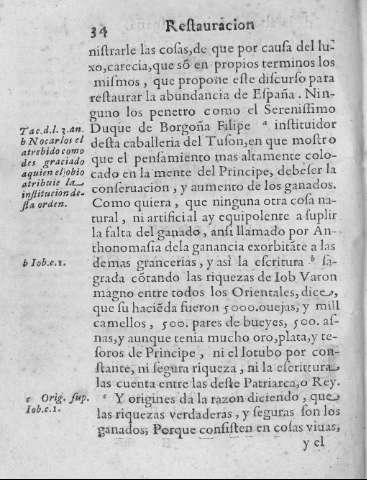 34 Restauracion
nistrarle las cosas, de que por causa del lu-
xo, carecia, que sō en propios terminos los
mismos, que propone este discurso para
restaurar la abundancia de España. Nin-
guno los penetro como el Serenissimo
Duque de Borgoña Filipe ª instituidor
desta caballeria del Tuson, en que mostro
que el pensamiento mas altamente colo-
cado en la mente del Principe, debe ser la
conseruacion, y aumento de los ganados.
Como quiera, que ninguna otra cosa na-
tural, ni artificial ay equipolente a suplir
la falta del ganado, ansi llamado por An-
thonomasia dela ganancia exorbitāte a las
demas grancerias, y asì la escritura ᵇ sa-
grada cōtando las riquezas de Iob Varon
magno entre todos los Orientales, dice,
que su haciēda fueron 5000. ouejas, y mill
camellos, 500. pares de bueyes, 500. as-
nas, y aunque tenia mucho oro, plata, y te-
soros de Principe, ni el lotubo por con-
stante, ni segura riqueza, ni la escritura
las cuenta entre las deste Patriarca, o Rey.
ᶜ Y origines da la razon diciendo, que
las riquezas verdaderas, y seguras son los
ganados; Porque consisten en cosas viuas,
y el
Tac. d. l. 3. an.
b No carlos el
atrebido como
des graciado
a quien el jobio
atribuie la
institucion de-
sta orden.
b Iob. c. 1.
c Orig. sup.
Iob. c. 1.